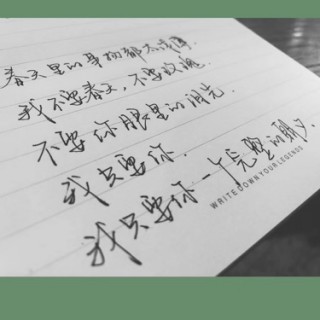 春天里的事物都太
我不要春天,不要玫瑰.
不要你眼里的
我只要你.
我只要你一个完整的
WRITE DOWN YOUR LEGENDS